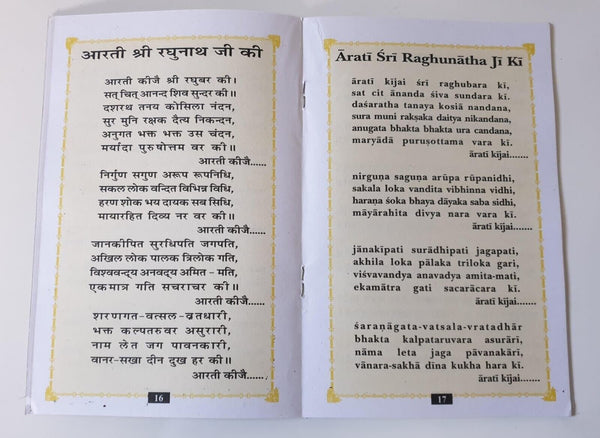 आरती श्री रघुनाथ जी की
आरती कीजै श्री रघुबर की।
सत् चित् आनन्द शिव सुन्दर की॥
दशरथ तनय कोसिला नंदन,
सुर मुनि रक्षक दैत्य निकन्दन,
अनुगत भक्त भक्त उस चंदन,
मर्यादा पुरुषोत्तम वर की॥
आरती कीजै......
निर्गुण सगुण अरूप रूपनिधि,
सकल लोक वन्दित विभिन्न विधि,
हरण शोक भय दायक सब सिधि,
मायारहित दिव्य नर वर की॥
आरती कीजै......
जानकीपित सुरधिपति जगपति,
अखिल लोक पालक त्रिलोक गति,
विश्ववन्द्य अनवद्य अमित - मति,
एकमात्र गति सचराचर की॥
आरती कीजै......
शरणागत-वत्सल-ब्रतधारी,
भक्त कल्पतरुवर असुरारी,
नाम लेत जग पावनकारी,
वानर-सखा दीन दुख हर की॥
आरती कीजै......
16
Āratī Śrī Raghunātha Jī Kī
āratī kījai śrī raghubara kī,
sat cit ānanda śiva sundara kī.
daśaratha tanaya kosiā nandana,
sura muni rakṣaka daitya nikandana,
anugata bhakta bhakta ura candana,
maryādā puruṣottama vara kī.
āratī kījai.......
nirguṇa saguṇa arūpa rūpanidhi,
sakala loka vandita vibhinna vidhi,
haraṇa śoka bhaya dāyaka saba sidhi,
māyārahita divya nara vara kī.
āratī kījai.......
jānakīpati surādhipati jagapati,
akhila loka pālaka triloka gari,
viśvavandya anavadya amita-mati,
ekamātra gati sacarācara kī.
āratī kījai.......
śaraṇāgata-vatsala-vratadhār
bhakta kalpataruvara asurāri,
nāma leta jaga pāvanakāri,
vānara-sakhā dīna kukha hara kī.
āratī kījai.......
17